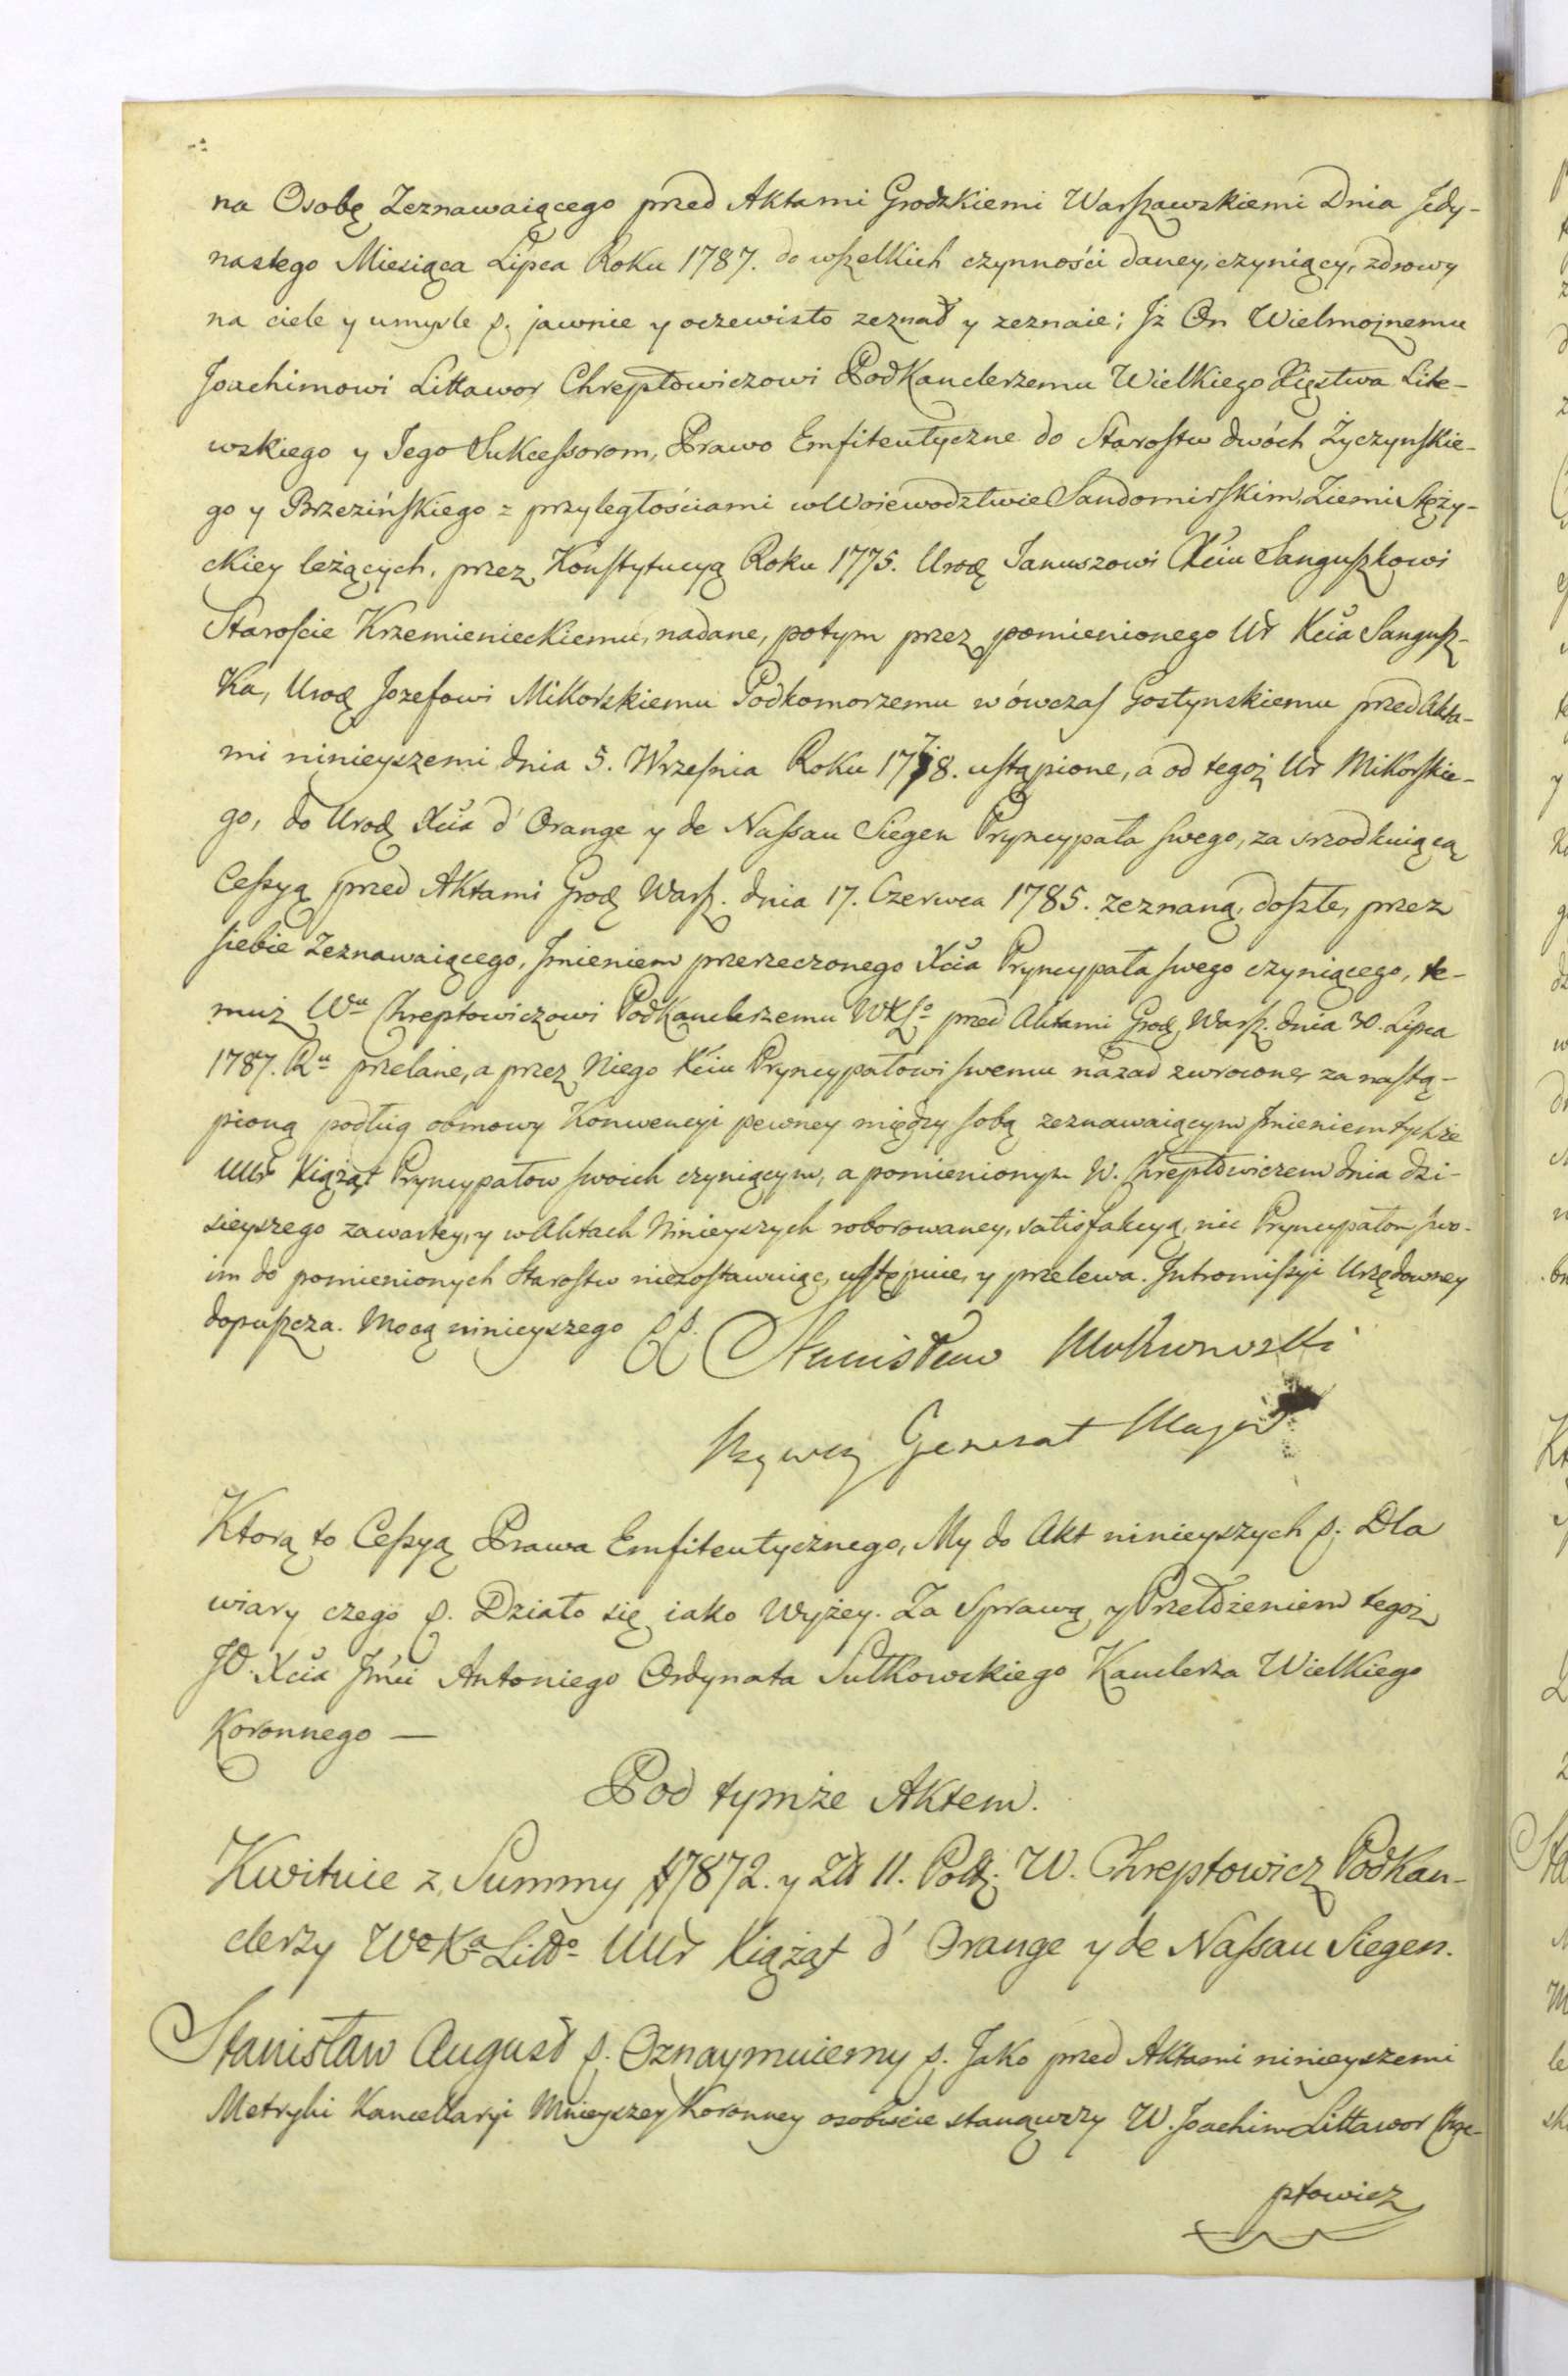 na Osobę Zeznawaiącego przed Aktami Grodzkiemi Warszawskiemi Dnia Jedy-
nastego Miesiąca Lipca Roku 1787. do wszelkich czynności daney, czyniący, zdrowy
na ciele y umysle p. jawnie y oczewisto zeznał y zeznaie; Jż On Wielmoznemu
Joachimowi Littawor Chreptowiczowi Podkanclerzemu Wielkiego Xięstwa Lite-
wskiego y Jego Sukcessorom, Prawo Emfiteutyczne do Starostw dwóch Życzynskie-
go y Brzezińskiego z przyległościami w Woiewodztwie Sandomirskim, Ziemi Stęży-
ckiey leżących, przez Konstytucyą Roku 1775. Urodz Januszowi Xciu Sanguszkowi
Staroscie Krzemienieckiemu, nadane, potym przez pomienionego Ur Xcia Sangusz-
ka, Urodz Jozefowi Mikorskiemu Podkomorzemu wówczas Gostynskiemu przed Akta-
mi ninieyszemi dnia 5. Wrzesnia Roku 1778. ustąpione, a od tegoż Ur Mikorskie-
go, do Urodz Xcia d'Orange y de Nassau Siegen Pryncypała swego, za srzodkuiącą
Cessyą przed Aktami Grodz Warsz. dnia 17. Czerwca 1785. zeznaną, doszłe, przez
siebie Zeznawaiącego, Jmieniem przerzeczonego Xcia Pryncypała swego czyniącego, te-
muż Wu Chreptowiczowi Podkanclerzemu WXLo przed Aktami Grodz Warsz. dnia 30. Lipca
1787. Ru przelane, a przez Niego Xciu Pryncypałowi swemu nazad zwrocone, za nastą-
pioną podług obmowy Konwencyi pewney między sobą zeznawaiącym Jmieniem tychże
UUr Xiążąt Pryncypałow swoich czyniącym, a pomienionym W. Chreptowiczem dnia dzi-
sieyszego zawartey, y w Aktach Ninieyszych roborowaney, satisfakcyą, nic Pryncypałom swo-
im do pomienionych Starostw niezostawuiąc, ustępuie, y przelewa. Jntromissyi Urzędowney
dopuszcza. Mocą ninieyszego p. Stanisław Mokronowski
Generał Major
Ktorą to Cessyą Prawa Emfiteutycznego, My do Akt ninieyszych p. Dla
wiary czego p. Działo się iako Wyżey. Za Sprawą y Przełożeniem tegoż
JO. Xcia Jmci Antoniego Ordynata Sułkowskiego Kanclerza Wielkiego
Koronnego —
Pod tymże Aktem.
Kwituie z Summy 17872. y Zł 11. Pols. W. Chreptowicz Podkan-
clerzy Wo Xa Litto UUr Xiążąt d'Orange y de Nassau Siegen.
Stanisław August p. Oznaymuiemy p. Jako przed Aktami ninieyszemi
Metryki Kancellaryi Mnieyszey Koronney osobiscie stanąwszy W. Joachim Littawor Chre-
ptowicz